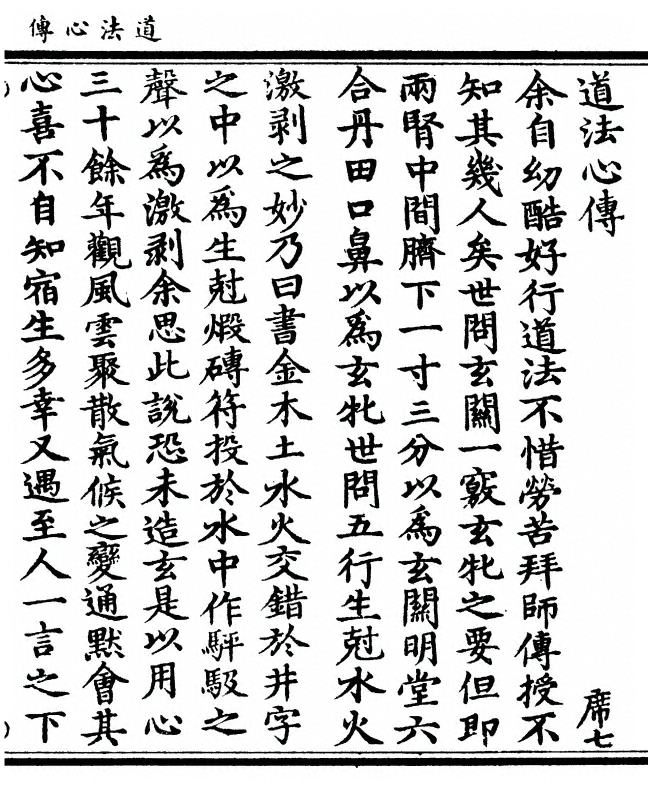 道法心傳
道法心傳
席七
余自幼酷好行道法不惜勞苦拜師傳授不
知其幾人矣世問玄關一竅玄牝之要但即
兩腎中間臍下一寸三分以爲玄關明堂六
合丹田口鼻以爲玄牝世問五行生尅水火
激剥之妙乃曰書金木土水火交錯於井字
之中以爲生尅煅磚符投於水中作駍馺之
聲以爲激剥余思此說恐未造玄是以用心
三十餘年觀風雲聚散氣候之變通默會其
心喜不自知宿生多幸又遇至人一言之下